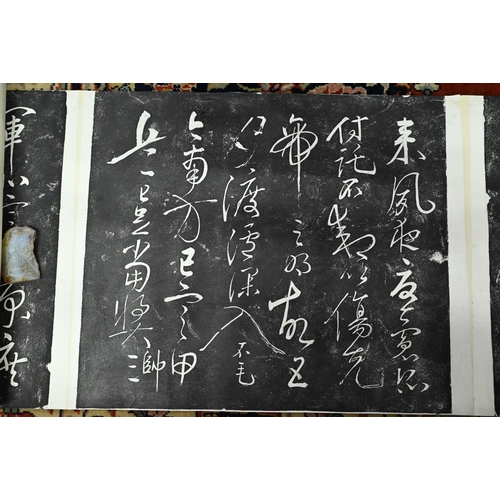 来夙夜憂慮恐
付託不效以傷先
帝之明故五
月渡瀘深入不毛
今南方已定甲
兵已足當獎帥三
軍北定原庶